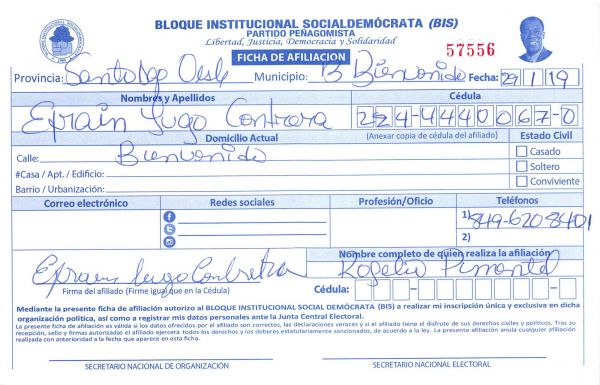 BLOQUE INSTITUCIONAL SOCIALDEMÓCRATA (BIS)
PARTIDO PEÑAGOMISTA
Libertad, Justicia, Democracia y Solidaridad
57556
FICHA DE AFILIACION
Provincia: Santo Dgo Oeste Municipio: B Bienvenido Fecha: 29/1/19
Nombres y Apellidos Cédula
Efrain Lugo Contrera 224-4440067-0
Domicilio Actual (Anexar copia de cédula del afiliado) Estado Civil
Calle: Bienvenido Casado
#Casa / Apt. / Edificio: Soltero
Barrio / Urbanización: Conviviente
Correo electrónico Redes sociales Profesión/Oficio Teléfonos
1) 849-620-8401
2)
Efrain Lugo Contrera Nombre completo de quien realiza la afiliación
Rogelio Pimentel
Firma del afiliado (Firme igual que en la Cédula) Cédula:
Mediante la presente ficha de afiliación autorizo al BLOQUE INSTITUCIONAL SOCIAL DEMÓCRATA (BIS) a realizar mi inscripción única y exclusiva en dicha
organización política, así como a registrar mis datos personales ante la Junta Central Electoral.
La presente ficha de afiliación es válida si los datos ofrecidos por el afiliado son correctos, las declaraciones veraces y si el afiliado tiene el disfrute de sus derechos civiles y políticos. Tras su
recepción, sello y firmas autorizadas el afiliado ejercerá todos los derechos y los deberes estatutariamente sancionados, de acuerdo a la ley. La presente afiliación anula cualquier afiliación
realizada con anterioridad a la fecha que aparece en esta ficha.
SECRETARIO NACIONAL DE ORGANIZACIÓN SECRETARIO NACIONAL ELECTORAL